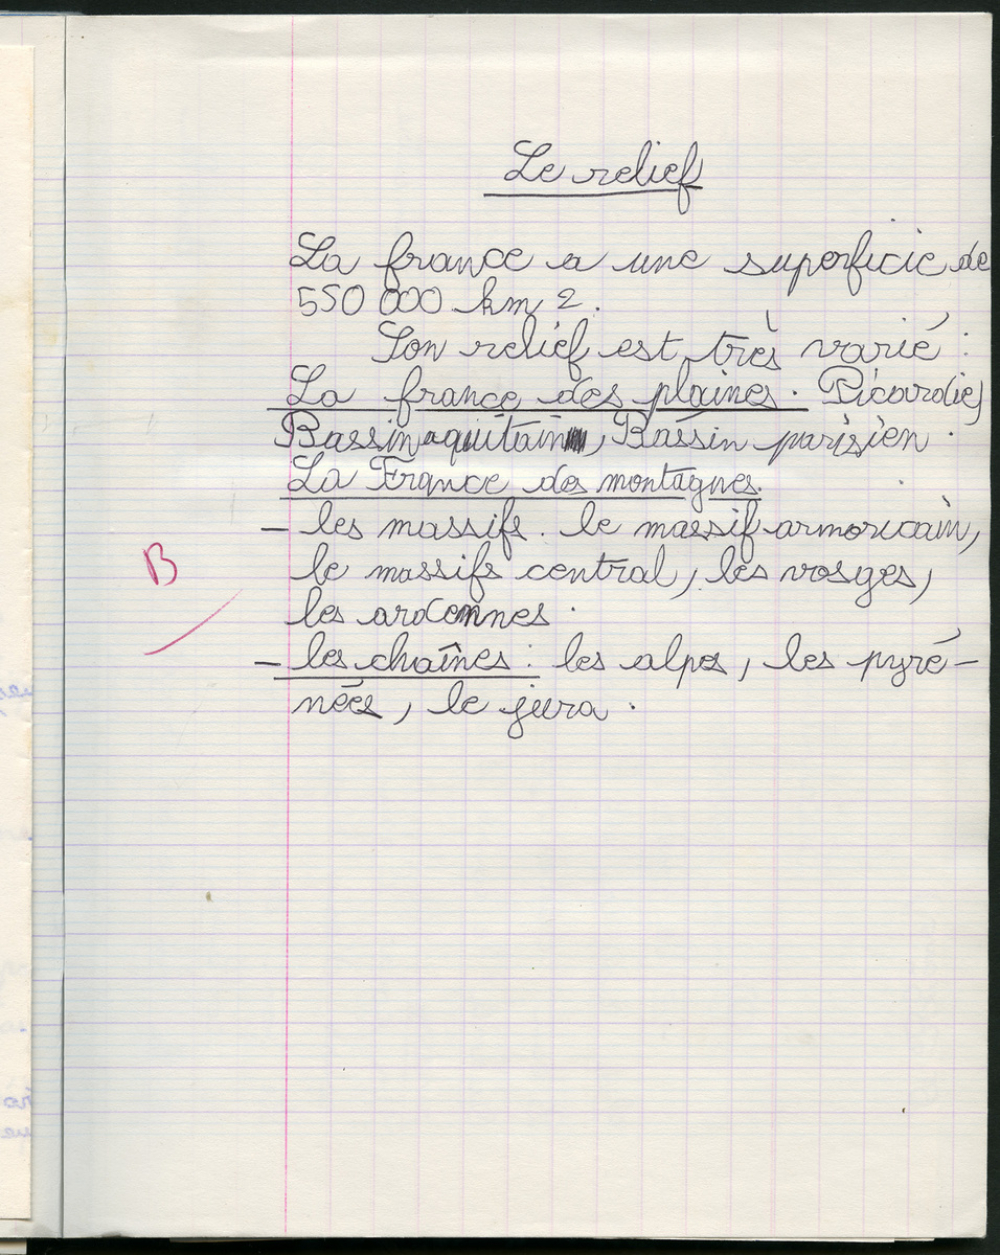 Le relief
La france a une superficie de
550 000 km 2.
Son relief est très varié :
La france des plaines. Picardie,
Bassin aquitain, Bassin parisien.
La France des montagnes.
- les massifs. le massif armoricain,
le massifs central, les vosges,
les ardennes.
B
- les chaînes : les alpes, les pyré-
nées, le jura.